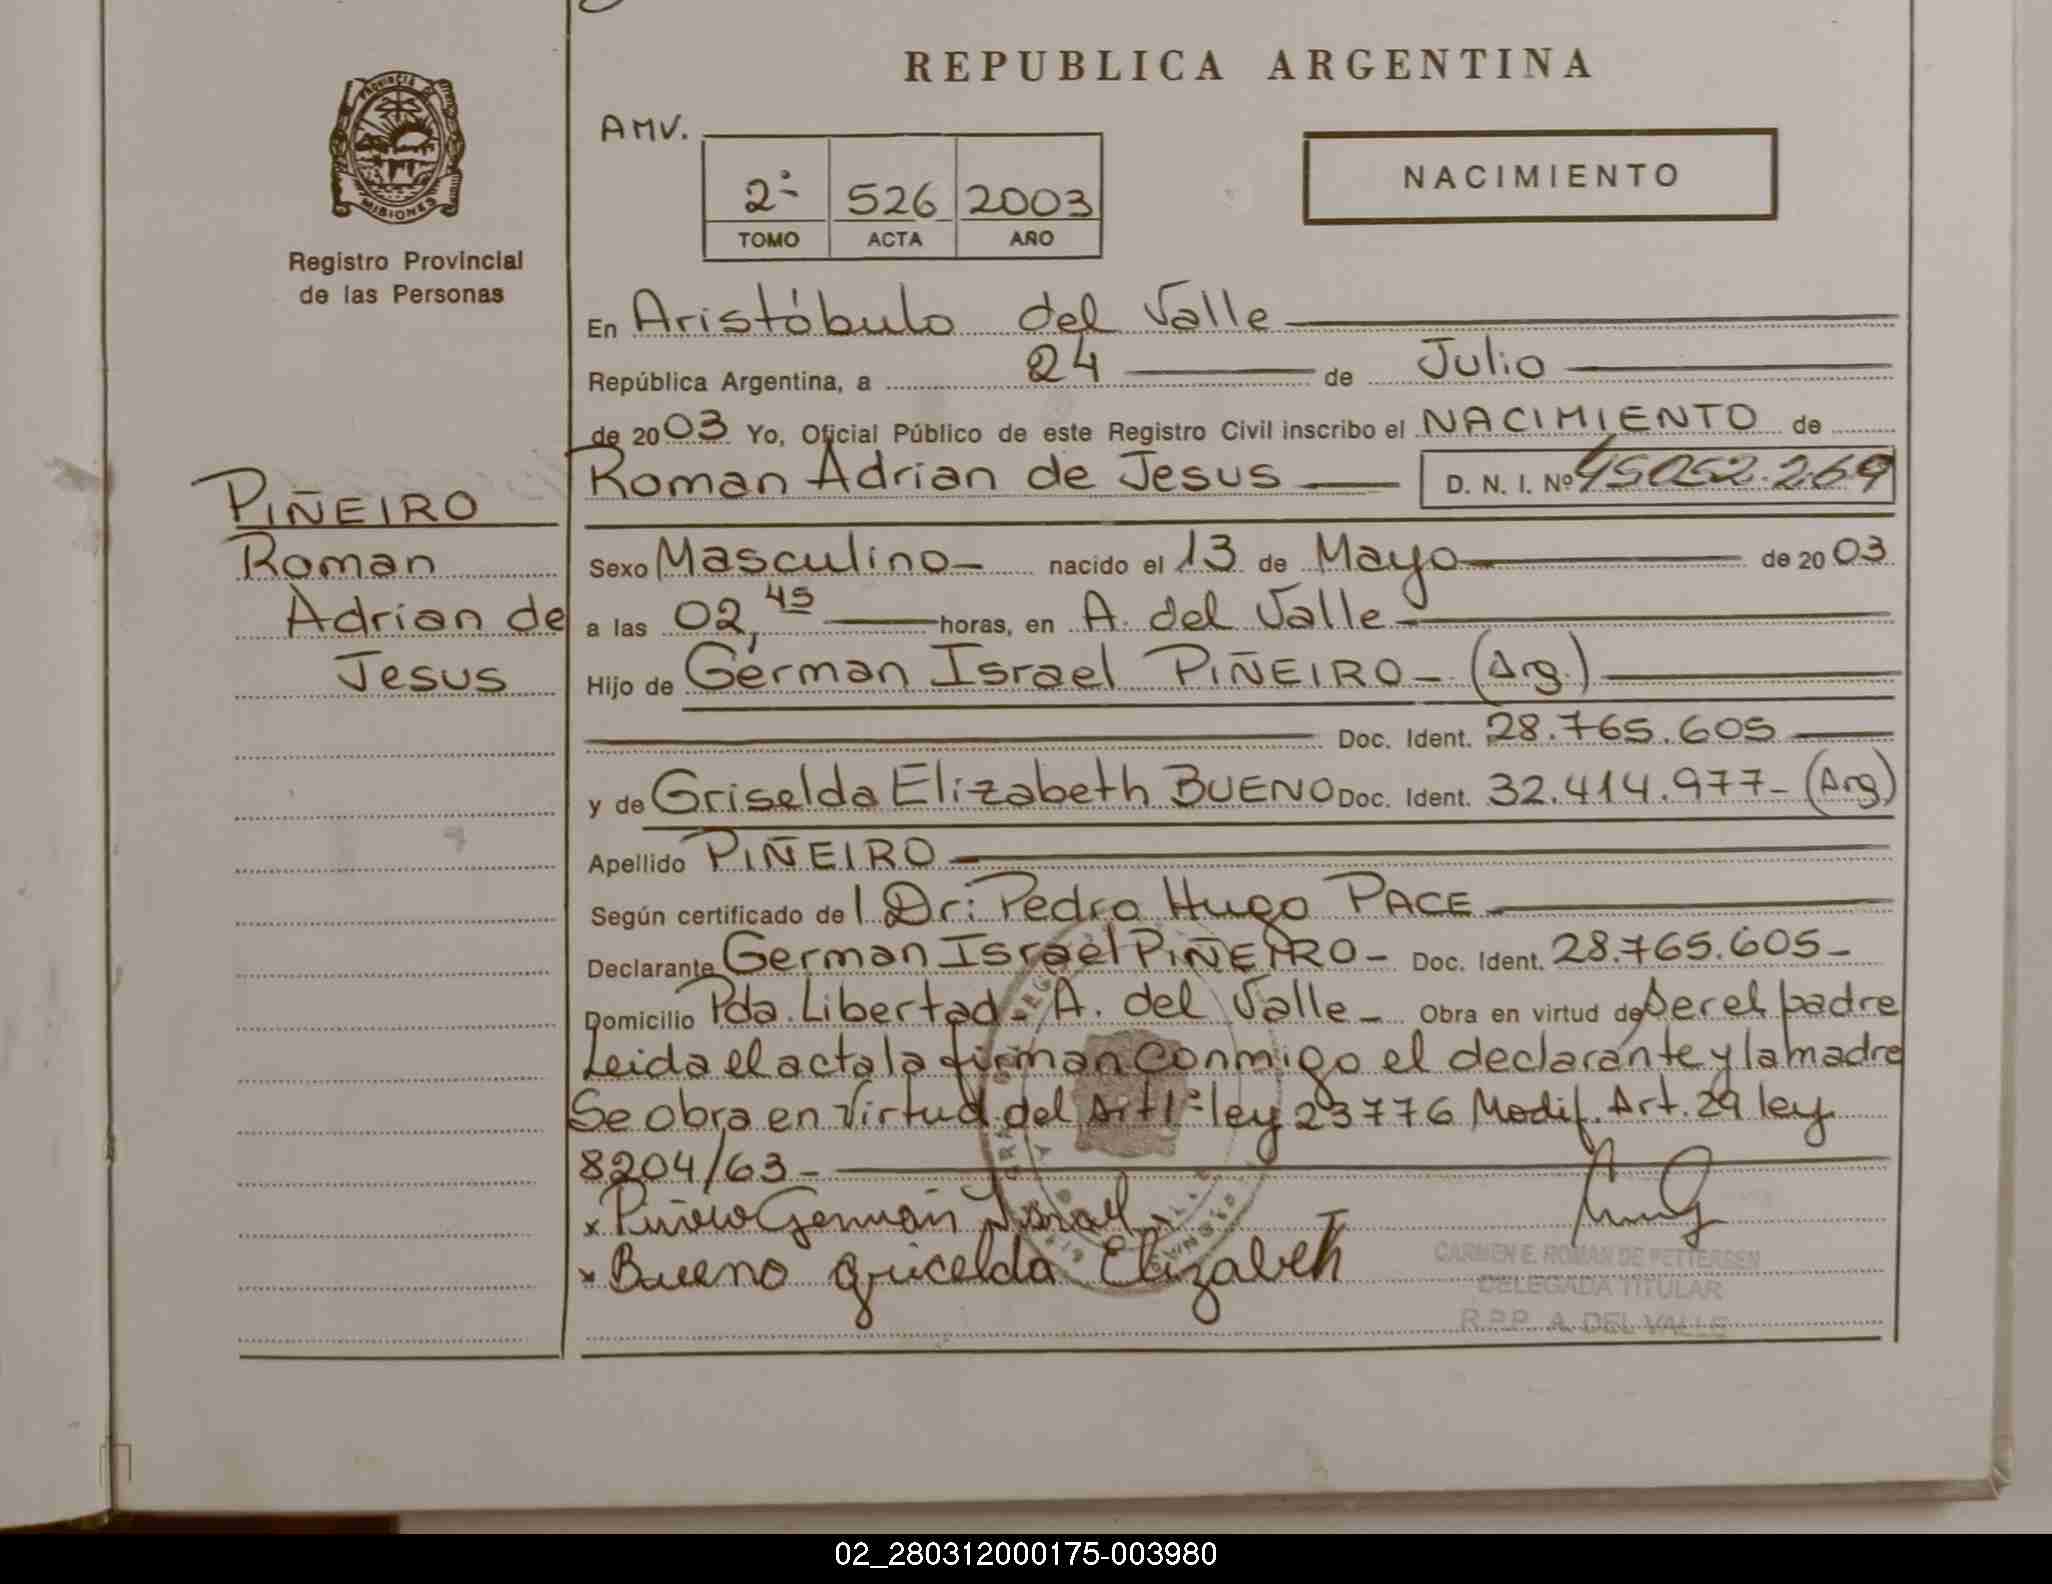 REPUBLICA ARGENTINA
AMV.
PROVINCIA DE
MISIONES
Registro Provincial
de las Personas
2º 526 2003
TOMO ACTA AÑO
NACIMIENTO
En Aristóbulo del Valle
República Argentina, a 24 de Julio
de 2003 Yo, Oficial Público de este Registro Civil inscribo el NACIMIENTO de
Roman Adrian de Jesus D. N. I. Nº 45052.269
PIÑEIRO
Roman
Adrian de
Jesus
Sexo Masculino nacido el 13 de Mayo de 2003
a las 02,45 horas, en A. del Valle
Hijo de German Israel PIÑEIRO (Arg.)
Doc. Ident. 28.765.605
y de Griselda Elizabeth BUENO Doc. Ident. 32.414.977- (Arg)
Apellido PIÑEIRO
Según certificado del Dr: Pedro Hugo PACE
Declarante German Israel PIÑEIRO- Doc. Ident. 28.765.605-
Domicilio Pda. Libertad- A. del Valle- Obra en virtud de ser el padre
Leida el acta la firman conmigo el declarante y la madre
Se obra en virtud del Art 1º ley 23776 Modif. Art. 29 ley
8204/63-
x Piñeiro German Israel
x Bueno gricelda Elizabeth
CARMEN E. ROMAN DE PETTERSEN
DELEGADA TITULAR
R.P.P. A. DEL VALLE
02_280312000175-003980